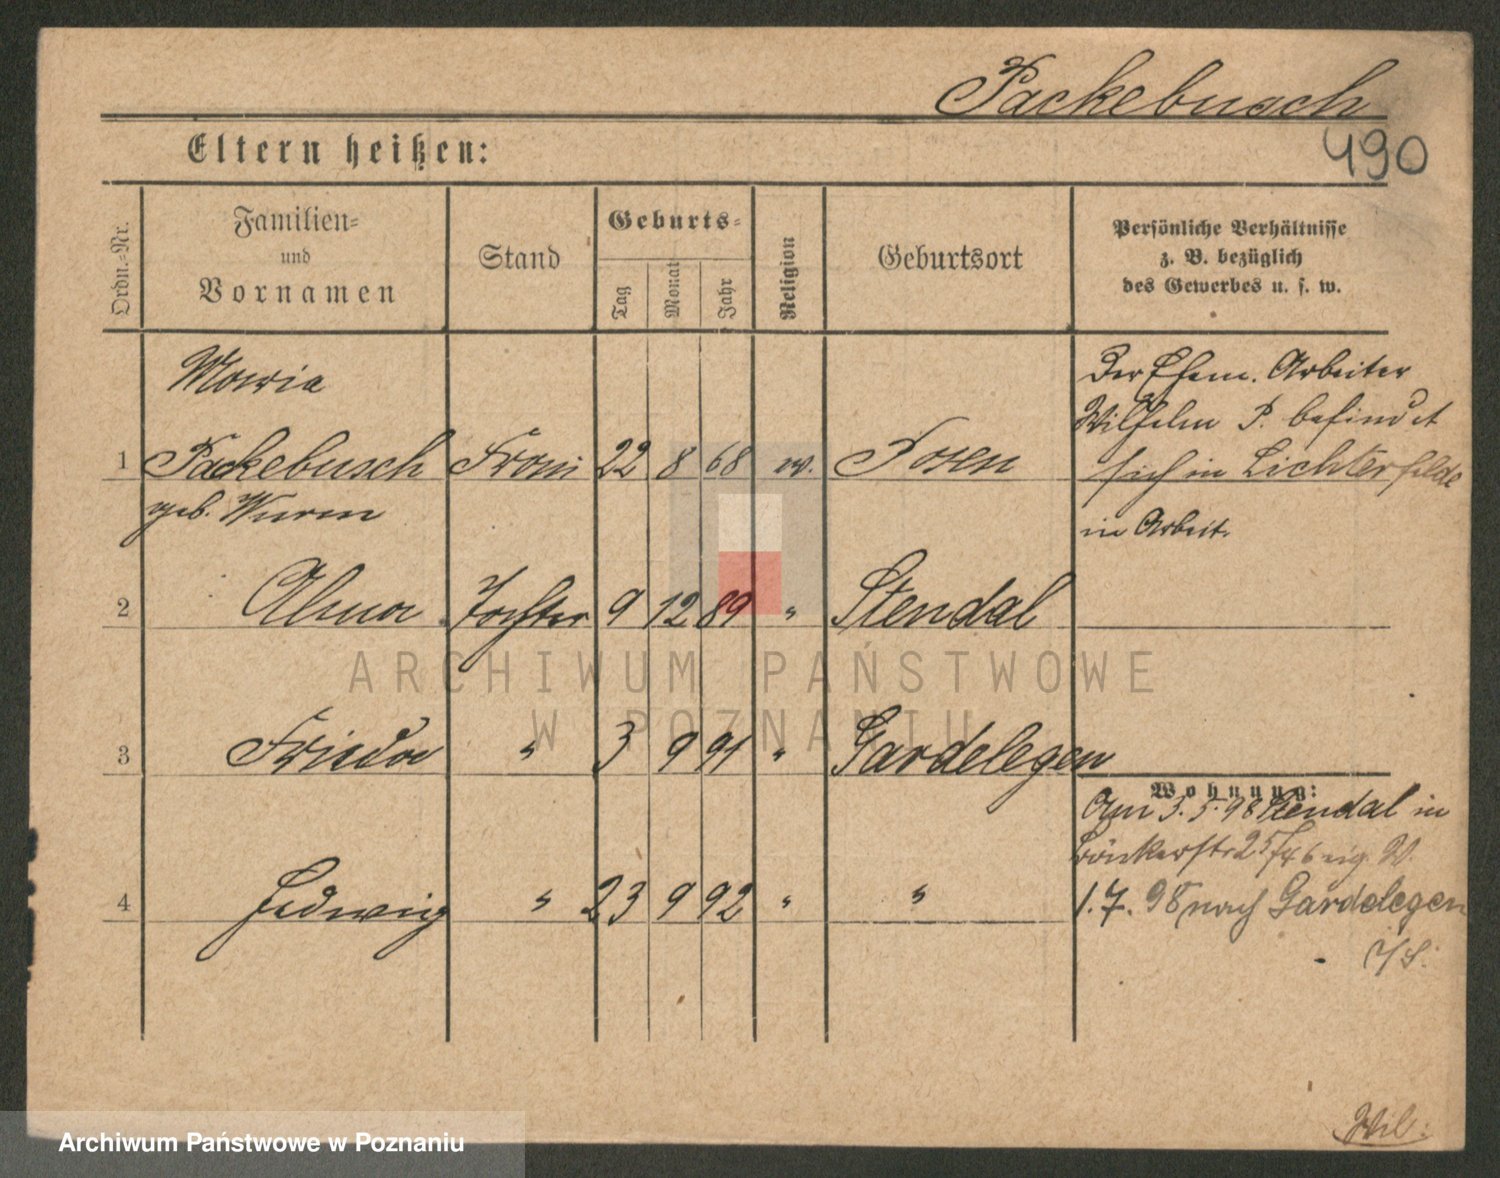 Packebusch
490
Eltern heißen:
Ordn.-Nr.
Familien-
und
Vornamen
Stand
Geburts-
Tag
Monat
Jahr
Religion
Geburtsort
Persönliche Verhältnisse
z. B. bezüglich
des Gewerbes u. s. w.
Maria
1 Packebusch Frau 22 8 68 ev. Posen
geb. Wurm
Der Ehem. Arbeiter
Wilhelm P. befindet
sich in Lichterfelde
in Arbeit.
2 Alma Tochter 9 12 89 " Stendal
3 Frieda " 3 9 91 " Gardelegen
4 Hedwig " 23 9 92 " "
Wohnung:
Am 3.5.98 Stendal in
1.7.98 nach Gardelegen
Wil.
ARCHIWUM PAŃSTWOWE
W POZNANIU
Archiwum Państwowe w Poznaniu